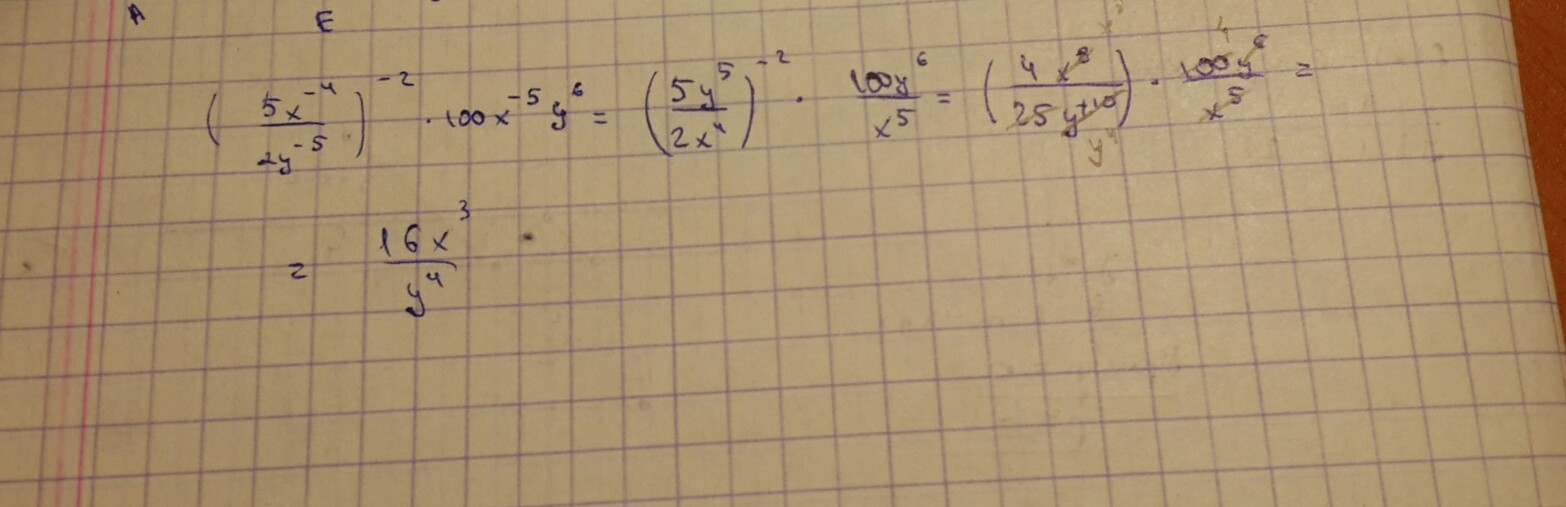 A E
(5x^-4 / 2y^-5)^-2 · 100x^-5 y^6 = (5y^5 / 2x^4)^-2 · 100y^6 / x^5 = (4x^8 / 25y^+10) · 100y^6 / x^5 =
= 16x^3 / y^4